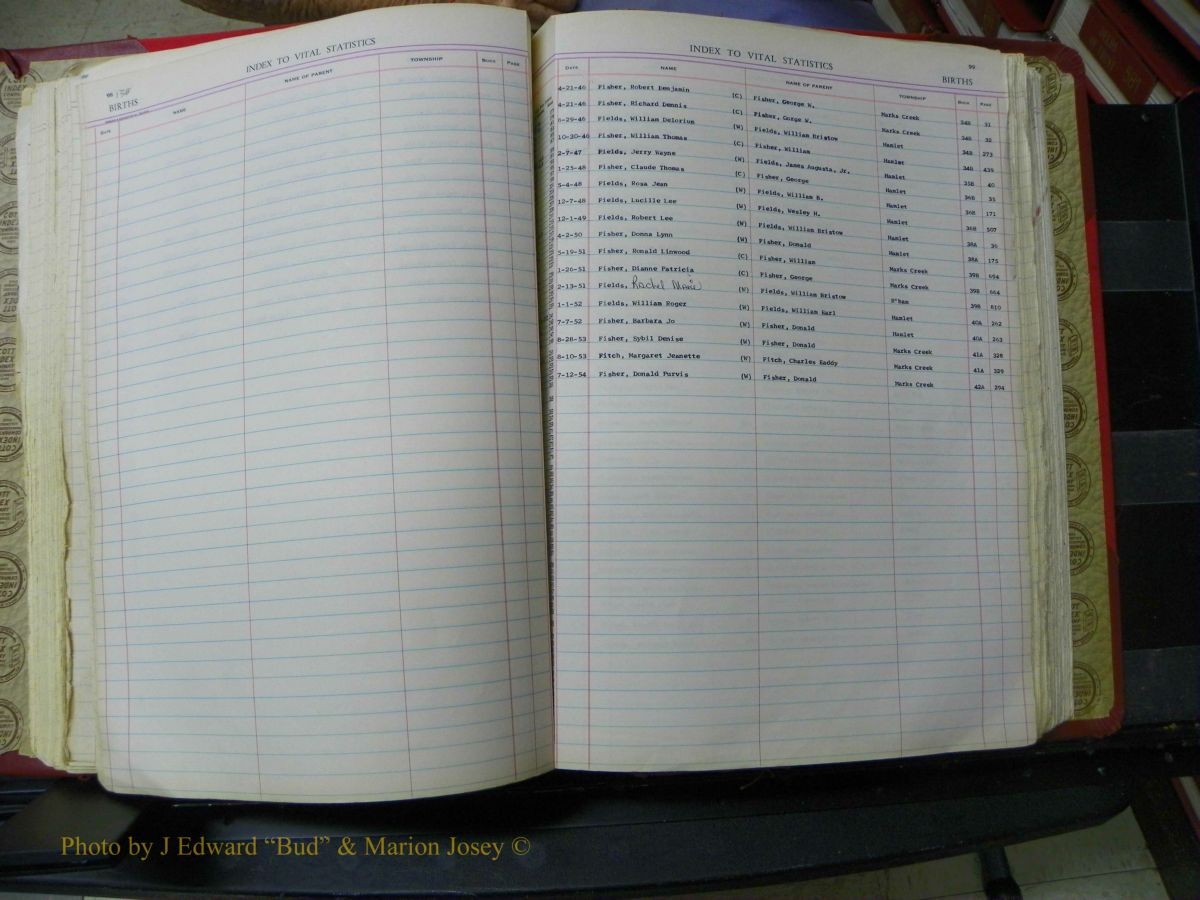 INDEX TO VITAL STATISTICS
BIRTHS
DATE NAME NAME OF PARENT TOWNSHIP BOOK PAGE
INDEX TO VITAL STATISTICS
99
BIRTHS
DATE NAME NAME OF PARENT TOWNSHIP BOOK PAGE
4-21-46 Fisher, Robert Benjamin (C) Fisher, George W. Marks Creek 34B 31
4-21-46 Fisher, Richard Dennis (C) Fisher, Gorge W. Marks Creek 34B 32
8-29-46 Fields, William Delorius (W) Fields, William Bristow Hamlet 34B 273
10-20-46 Fisher, William Thomas (C) Fisher, William Hamlet 34B 439
2-7-47 Fields, Jerry Wayne (W) Fields, James Augusta, Jr. Hamlet 35B 40
1-25-48 Fisher, Claude Thomas (C) Fisher, George Hamlet 36B 35
5-4-48 Fields, Rosa Jean (W) Fields, William B. Hamlet 36B 171
12-7-48 Fields, Lucille Lee (W) Fields, Wesley H. Hamlet 36B 507
12-1-49 Fields, Robert Lee (W) Fields, William Bristow Hamlet 38A 36
4-2-50 Fisher, Donna Lynn (W) Fisher, Donald Hamlet 38A 175
5-19-51 Fisher, Ronald Linwood (C) Fisher, William Marks Creek 39B 694
1-26-51 Fisher, Dianne Patricia (C) Fisher, George Marks Creek 39B 664
2-13-51 Fields, Rachel Marie (W) Fields, William Bristow R'ham 39B 610
1-1-52 Fields, William Roger (W) Fields, William Earl Hamlet 40A 262
7-7-52 Fisher, Barbara Jo (W) Fisher, Donald Hamlet 40A 263
8-28-53 Fisher, Sybil Denise (W) Fisher, Donald Marks Creek 41A 328
8-10-53 Fitch, Margaret Jeanette (W) Fitch, Charles Eaddy Marks Creek 41A 329
7-12-54 Fisher, Donald Purvis (W) Fisher, Donald Marks Creek 42A 294
Photo by J Edward “Bud” & Marion Josey ©